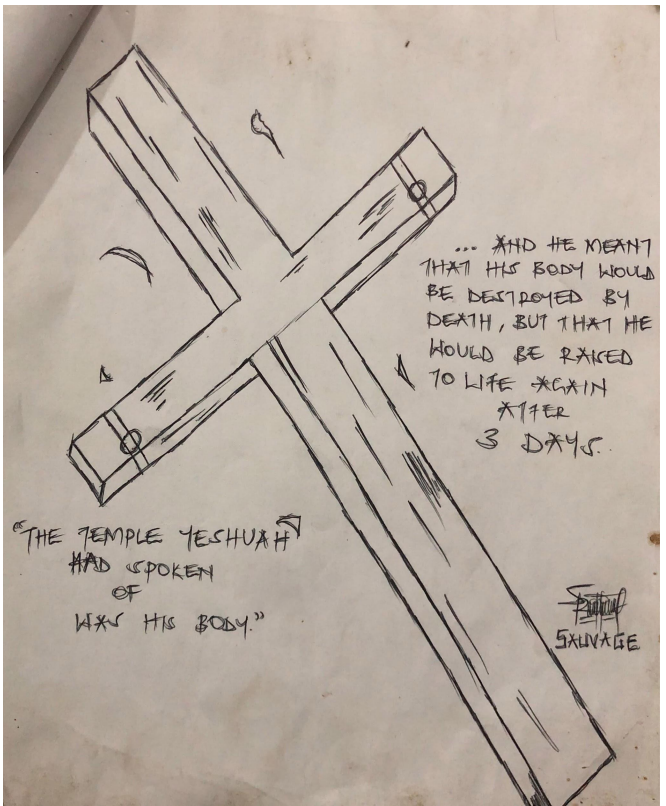 ... AND HE MEANT
THAT HIS BODY WOULD
BE DESTROYED BY
DEATH, BUT THAT HE
WOULD BE RAISED
TO LIFE AGAIN
AFTER
3 DAYS..
"THE TEMPLE YESHUAH
HAD SPOKEN
OF
WAS HIS BODY."
SAUVAGE